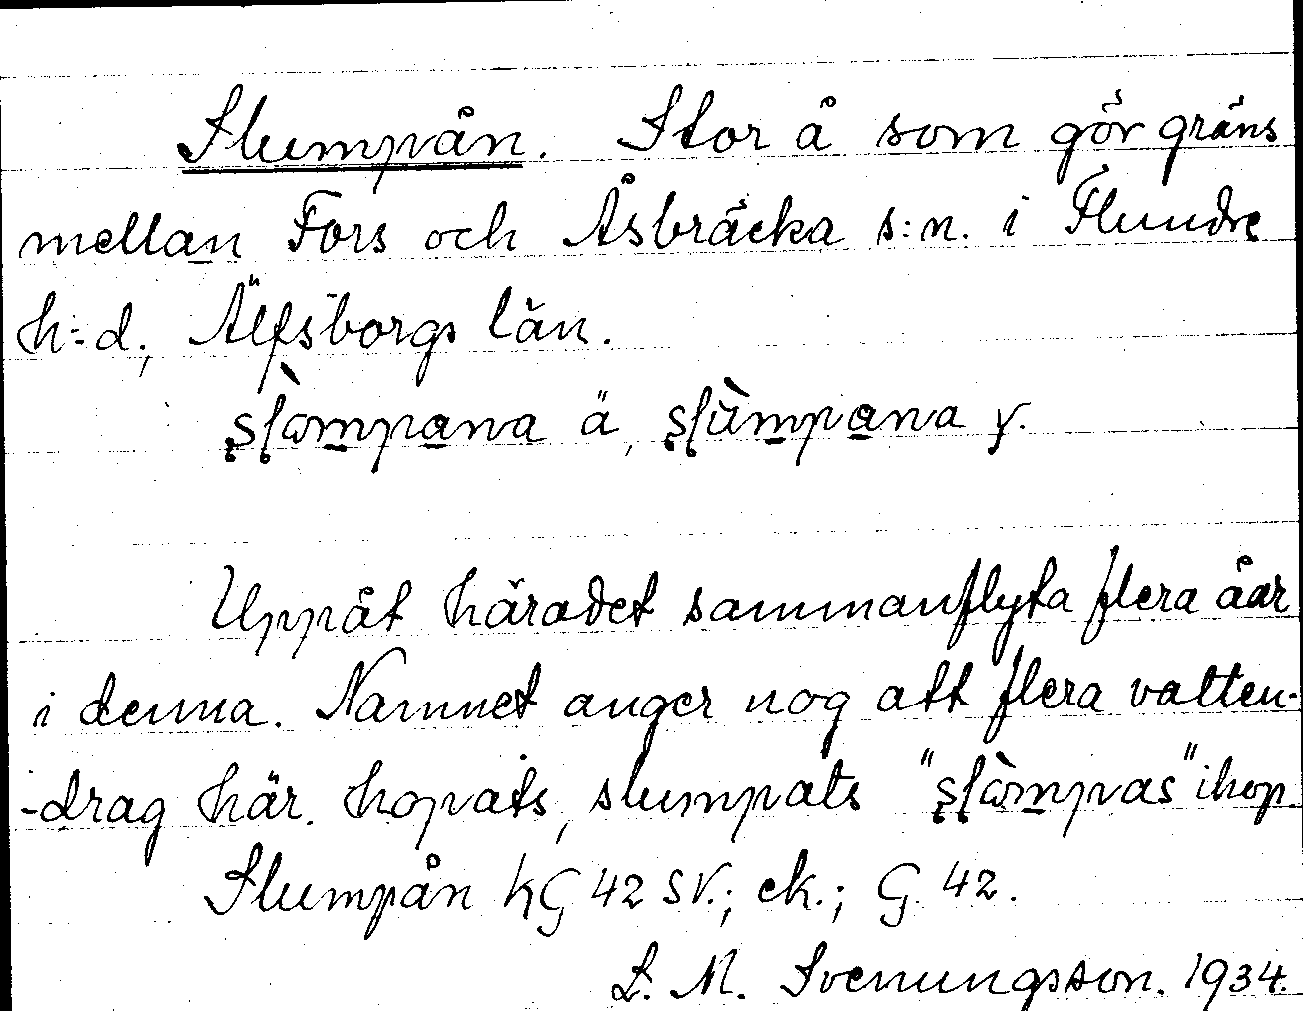 Slumpån. Stor å som gör gräns
mellan Fors och Åsbräcka s:n. i Flundre
h:d., Älfsborgs län.
slòmpana ä, slùmpana y.
Uppåt häradet sammanflyta flera åar
i denna. Namnet anger nog att flera vatten-
-drag här hopats, slumpats "slòmpas" ihop
Slumpån kG 42 SV.; ek.; G. 42.
L. M. Svenungsson. 1934.